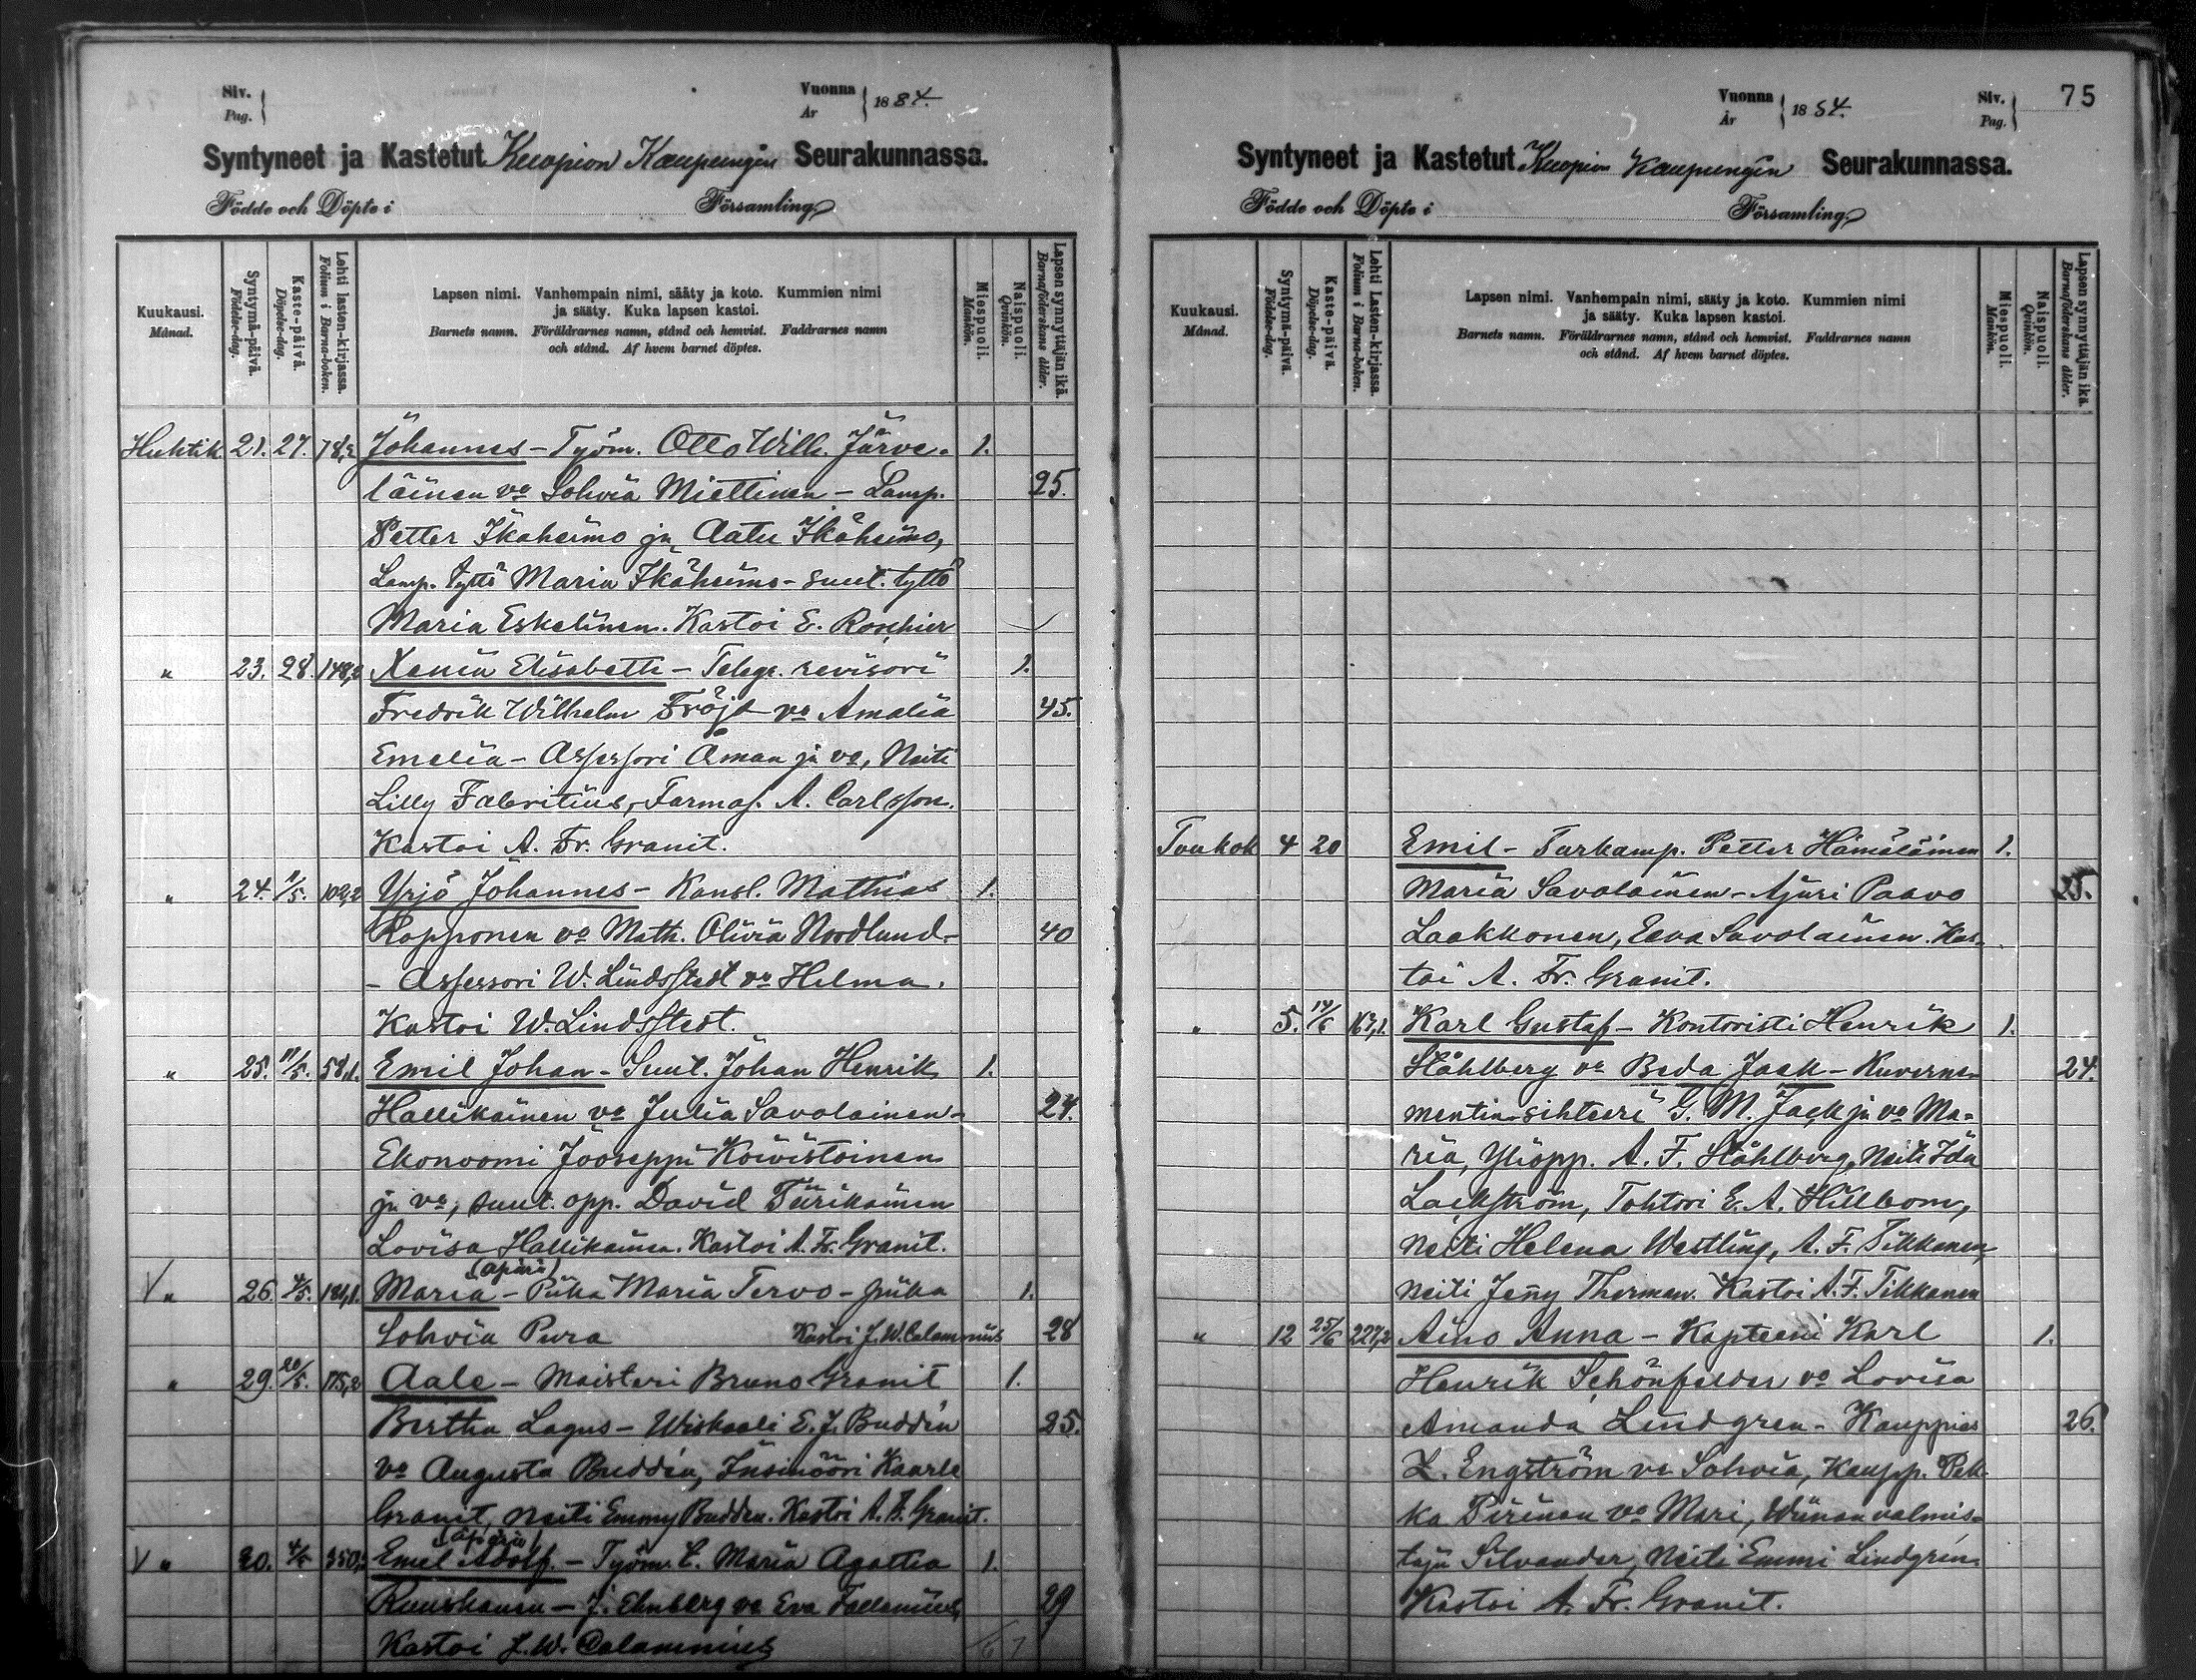 Siv.
Pag.
Vuonna
År
1884.
Syntyneet ja Kastetut Kuopion Kaupungin Seurakunnassa.
Födde och Döpte i Församling
Kuukausi.
Månad.
Syntymä-päivä.
Födelse-dag.
Kaste-päivä.
Döpelse-dag.
Lehti lasten-kirjassa.
Folium i Barna-boken.
Lapsen nimi. Vanhempain nimi, sääty ja koto. Kummien nimi
ja sääty. Kuka lapsen kastoi.
Barnets namn. Föräldrarnes namn, stånd och hemvist. Faddrarnes namn
och stånd. Af hvem barnet döptes.
Miespuoli.
Mankön.
Naispuoli.
Qvinkön.
Lapsen synnyttäjän ikä.
Barnaföderskans ålder.
Huhtik. 21. 27. 78,2 Johannes – Työm. Otto Wilh. Järve- 1.
läinen vo Sohvia Miettinen – Lamp. 25.
Petter Ikäheimo ja Aatu Ikäheimo,
Lamp. tyttö Maria Ikäheimo – suut. tyttö
Maria Eskelinen. Kastoi E. Roschier
" 23. 28. 148,2 Xenia Elisabeth – Telegr. revisori 1.
Fredrik Wilhelm Fröjd vo Amalia 45.
Emelia – Assessori Åman ja vo, Neiti
Lilly Fabritius, Farmas. A. Carlsson.
Kastoi A. Fr. Granit.
" 24. /5. 109,2 Yrjö Johannes – Kansl. Mathias 1.
Ropponen vo Math. Olivia Nordlund – 40
– Assessori W. Lindstedt vo Helma.
Kastoi W. Lindstedt.
" 25. 11/5. 58,1. Emil Johan – Suut. Johan Henrik 1.
Hallikainen vo Julia Savolainen – 24.
Ekonoomi Jooseppi Koivistoinen
ja vo, suut. opp. David Tiirikainen
Lovisa Hallikainen. Kastoi A. Fr. Granit.
(äpärä)
V " 26. 4/5. 181,1. Maria – Piika Maria Tervo – piika 1.
Sohvia Pura Kastoi J. W. Calamnius 28
" 29. 20/5. 175,2 Aale – Maisteri Bruno Granit 1.
Bertha Lagus – Wiskaali E. J. Buddén 25.
vo Augusta Buddén, Insinööri Kaarle
Granit, Neiti Emmy Buddén. Kastoi A. F. Granit.
(äpärä)
V " 30. 4/5 350, Emel Adolf. – Työm. l. Maria Agatha 1.
Ruuskanen – J. Ehnberg vo Eva 29
Kastoi J. W. Calamnius
Vuonna
År
1884.
Siv.
Pag.
75
Syntyneet ja Kastetut Kuopion Kaupungin Seurakunnassa.
Födde och Döpte i Församling
Kuukausi.
Månad.
Syntymä-päivä.
Födelse-dag.
Kaste-päivä.
Döpelse-dag.
Lehti Lasten-kirjassa.
Folium i Barna-boken.
Lapsen nimi. Vanhempain nimi, sääty ja koto. Kummien nimi
ja sääty. Kuka lapsen kastoi.
Barnets namn. Föräldrarnes namn, stånd och hemvist. Faddrarnes namn
och stånd. Af hvem barnet döptes.
Miespuoli.
Mankön.
Naispuoli.
Qvinkön.
Lapsen synnyttäjän ikä.
Barnaföderskans ålder.
Toukok 4 20 Emil – Turkamp. Petter Hämäläinen 1.
Maria Savolainen – Ajuri Paavo 25.
Laakkonen, Eeva Savolainen. Kas-
toi A. Fr. Granit.
" 5. 14/6 167,1. Karl Gustaf – Kontoristi Henrik 1.
Ståhlberg vo Beda Jack – Kuverne- 24.
mentin-sihteeri G. M. Jack ja vo Ma-
ria, Yliopp. A. F. Ståhlberg, Neiti Ida
Lackström, Tohtori E. A. Hillbom,
Neiti Helena Westling, A. F. Tikkanen,
Neiti Jenny Thorman. Kastoi A. F. Tikkanen
" 12 25/6 227,2 Aino Anna – Kapteeni Karl 1.
Henrik Schönfelder vo Lovisa
Amanda Lindgren – Kauppias 26.
L. Engström vo Sohvia, Kaupp. Pek-
ka Pirinen vo Mari, Wiinan valmis-
taja Silvander, Neiti Emmi Lindgrén.
Kastoi A. Fr. Granit.